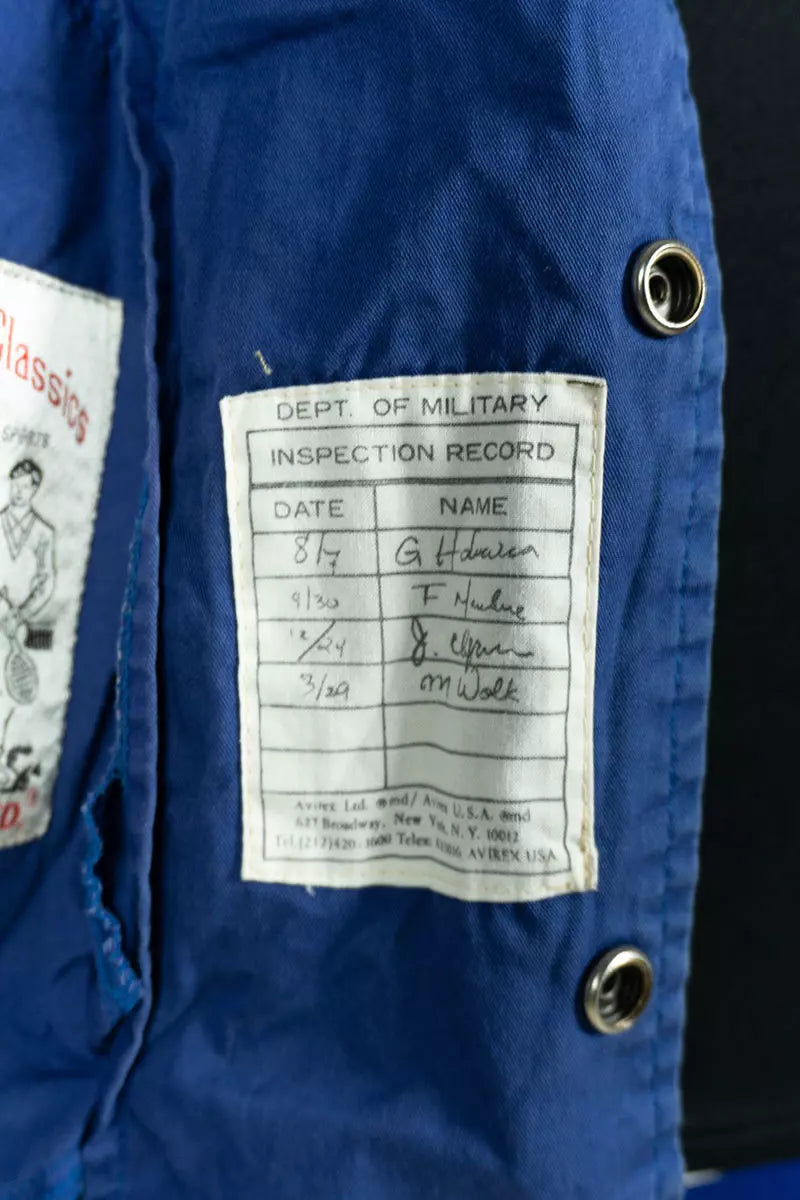 Classics
SPORTS
D.
DEPT. OF MILITARY
INSPECTION RECORD
DATE NAME
8/7 G
9/30 F
12/24 J.
3/29 M Wolk
Avirex Ltd. and/ U.S.A. and
627 Broadway, New York, N.Y. 10012
Tel.(212)420.1600 Telex AVIREX USA